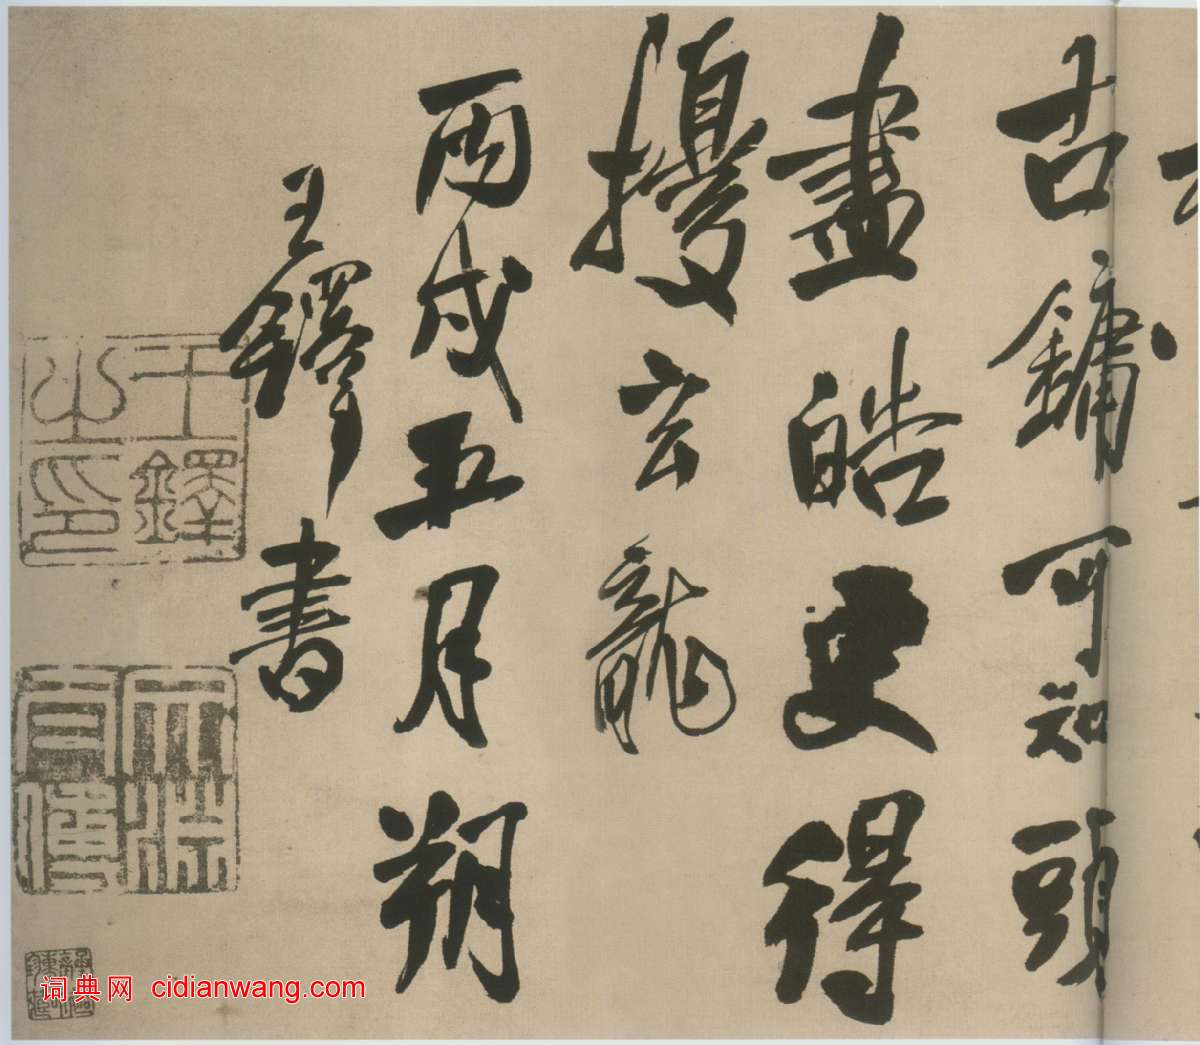 古鏞可知頭
盡皓更得
擾玄龍
丙戌五月朔
王鐸書
王鐸
之印
词典网 cidianwang.com